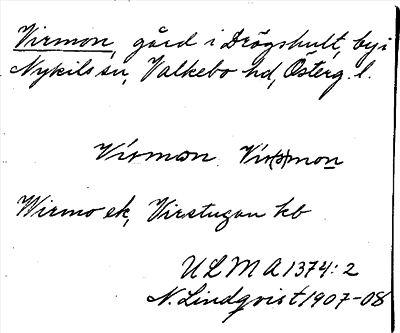 Virmon, gård i Drögshult, by i
Nykils sn, Valkebo hd, Österg. l.
Virmon Vir(r)mon
Wirmo ek, Virstugan kb
ULMA 1374:2
N. Lindqvist 1907-08